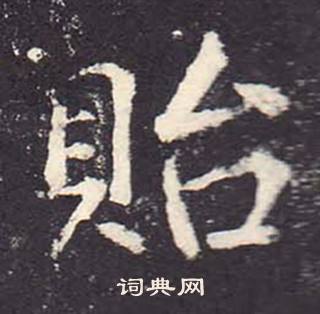 貽
词典网